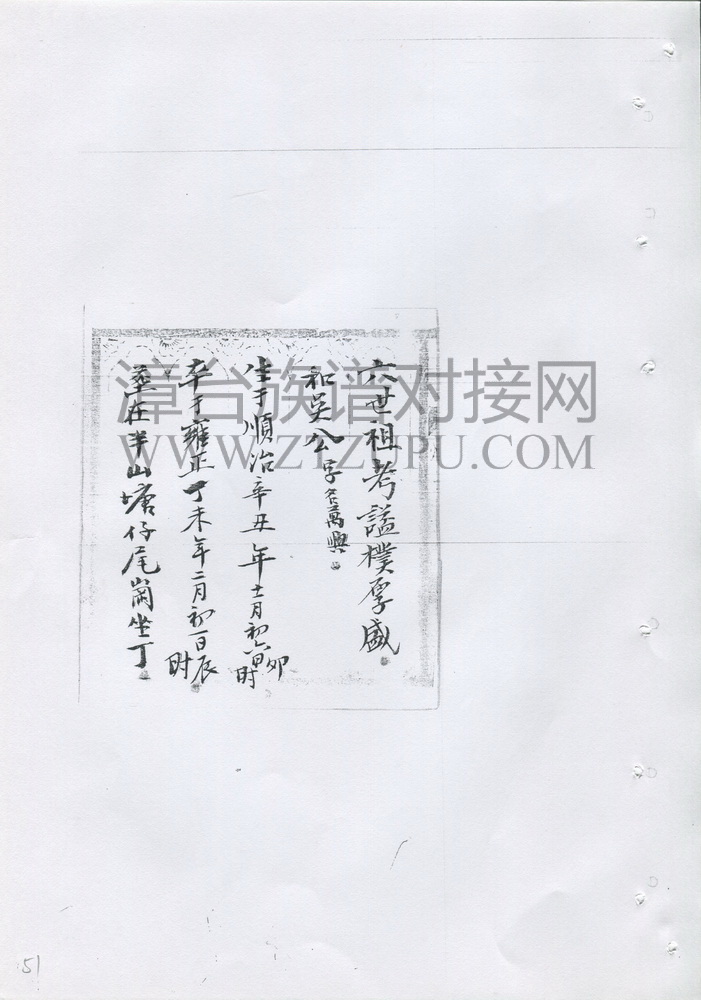 六世祖考謚樸厚盛
和吳公字名萬興
生于順治辛丑年十二月初六日卯時
卒于雍正丁未年二月初一日辰時
葬在半山塘仔尾崗坐丁
漳台族谱对接网
WWW.ZTZUPU.COM
51